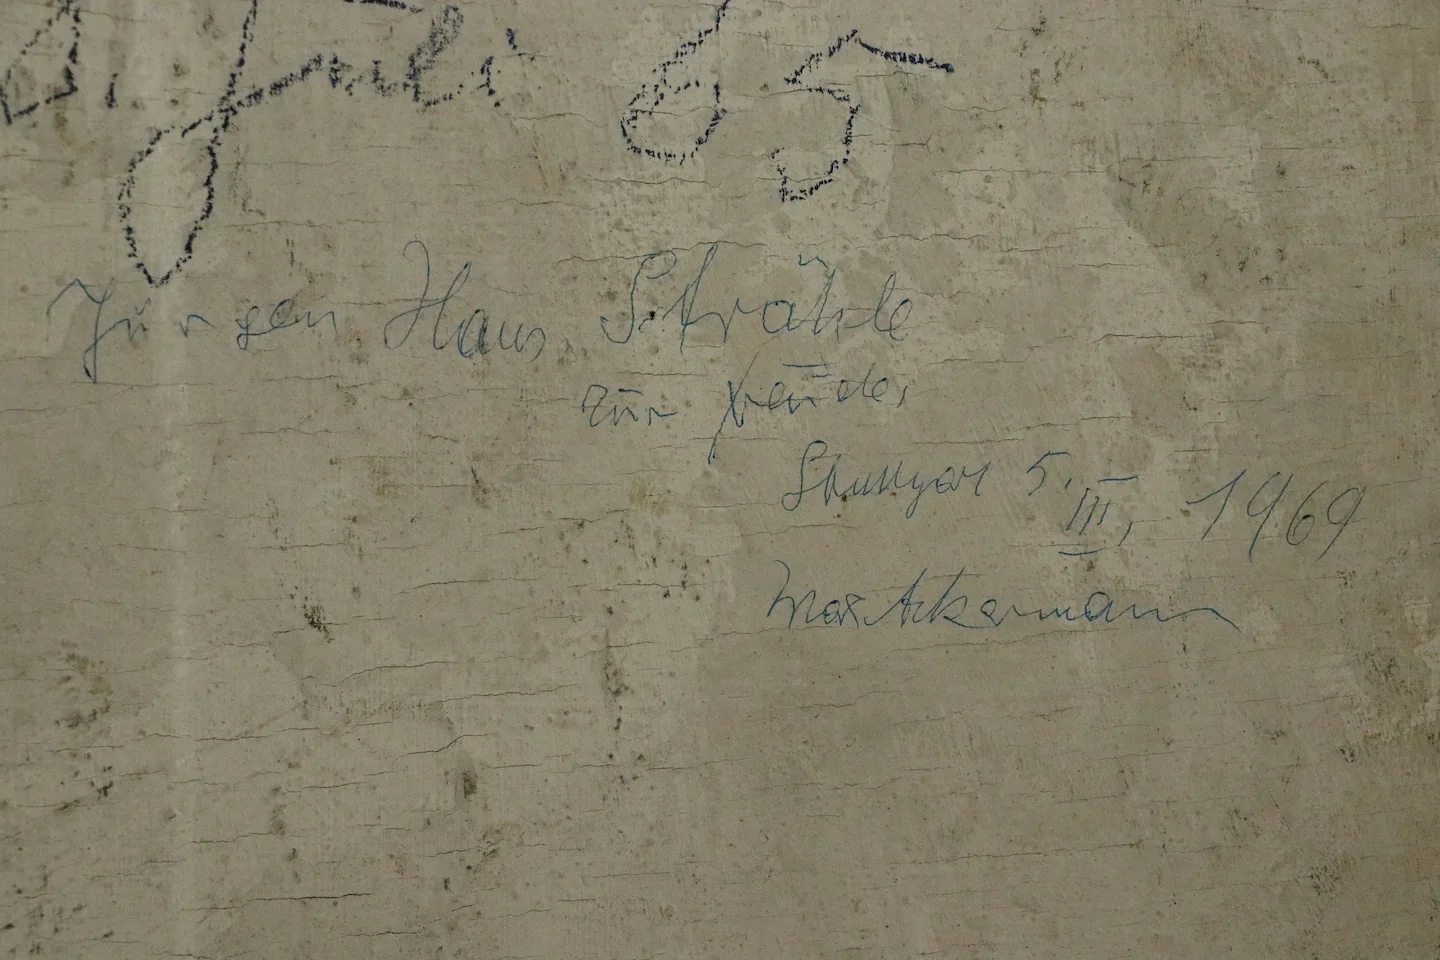 Juli 65
Jürgen Hans Strähle
zur Freude,
Stuttgart 5. III, 1969
Max Ackermann